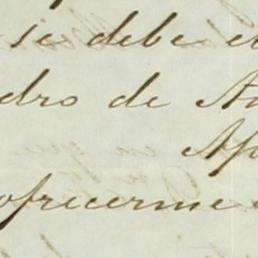 se debe el
dro de A
Af
ofrecerme